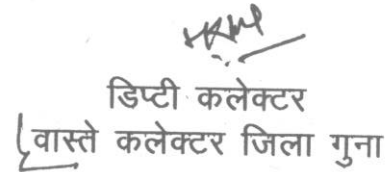 डिप्टी कलेक्टर
वास्ते कलेक्टर जिला गुना